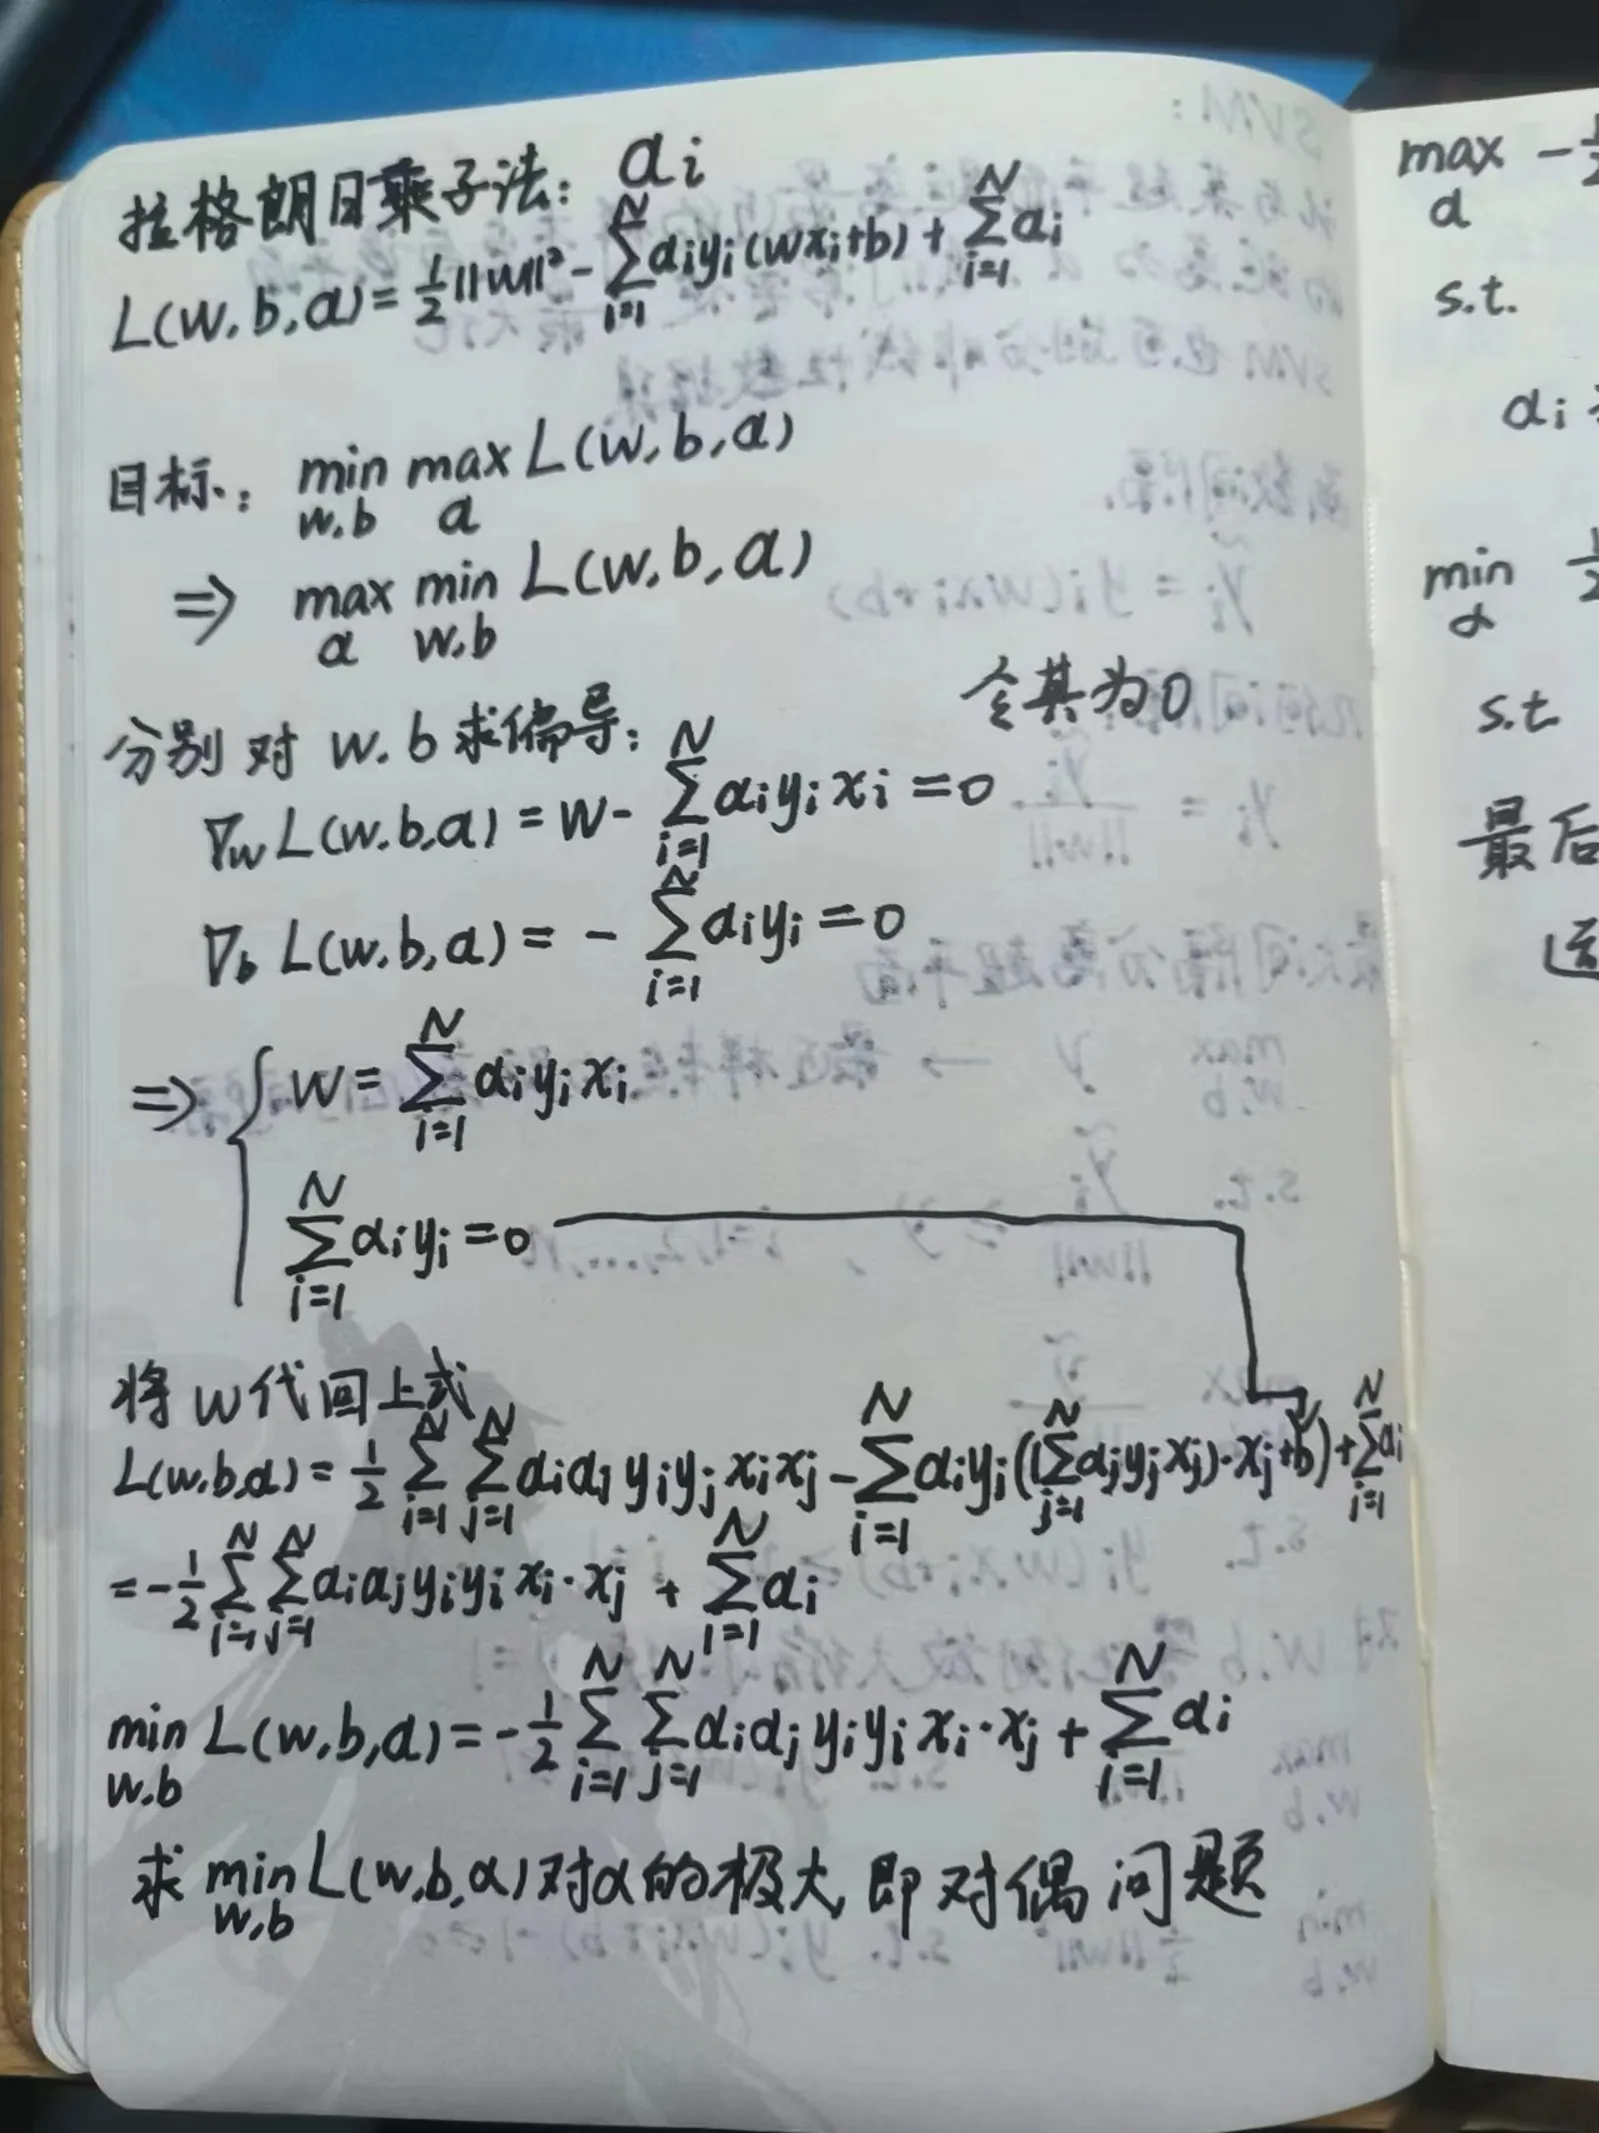 拉格朗日乘子法: αi
L(w,b,α) = 1/2 ||w||² - ∑_{i=1}^{N} αi yi (wxi+b) + ∑_{i=1}^{N} αi
目标: min_{w,b} max_{α} L(w,b,α)
⇒ max_{α} min_{w,b} L(w,b,α)
分别对 w.b 求偏导: 令其为0
∇w L(w,b,α) = w - ∑_{i=1}^{N} αi yi xi = 0
∇b L(w,b,α) = - ∑_{i=1}^{N} αi yi = 0
⇒ { w = ∑_{i=1}^{N} αi yi xi
∑_{i=1}^{N} αi yi = 0
将 w 代回上式
L(w,b,α) = 1/2 ∑_{i=1}^{N} ∑_{j=1}^{N} αi αj yi yj xi xj - ∑_{i=1}^{N} αi yi ((∑_{j=1}^{N} αj yj xj)·xj+b) + ∑_{i=1}^{N} αi
= -1/2 ∑_{i=1}^{N} ∑_{j=1}^{N} αi αj yi yi xi·xj + ∑_{i=1}^{N} αi
min_{w,b} L(w,b,α) = -1/2 ∑_{i=1}^{N} ∑_{j=1}^{N} αi αj yi yi xi·xj + ∑_{i=1}^{N} αi
求 min_{w,b} L(w,b,α) 对α的极大, 即对偶问题
max_{α} -1/2
s.t.
αi
min_{α} 1/2
s.t.
最后